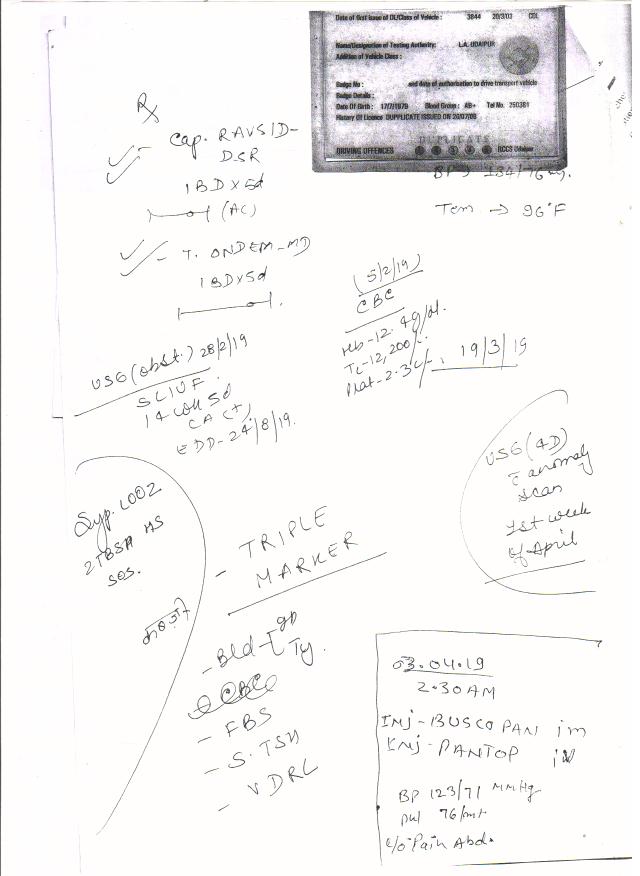 Date of first issue of DL/Class of Vehicle : 3844 20/3/03 CDL
Name/Designation of Testing Authority: L.A. UDAIPUR
Addition of Vehicle Class :
Badge No : and date of authorisation to drive transport vehicle
Badge Details :
Date Of Birth : 17/7/1979 Blood Group : AB+ Tel No. 250381
History Of Licence DUPPLICATE ISSUED ON 20/07/09
DUPLICATE
DRIVING OFFENCES RCCS Udaipur
BP → 134/76
Tem → 96°F
Rx
Cap. RAVSID-
DSR
1BD×5d
(AC)
T. ONDEM-MD
1BD×5d
(5/2/19)
CBC
Hb-12.4g/dl.
TC-12,200/-
Plat-2.3
19/3/19
USG (obst.) 28/2/19
SLIUF
14 5d
CA (+)
EDD-24/8/19.
USG (4D)
anomaly
scan
1st week
of April
Syp. LOOZ
2TBSP HS
SOS.
कब्ज
- TRIPLE
MARKER
- Bld-[gp
Ty.
CBC
- FBS
- S.TSH
- VDRL
03.04.19
2.30AM
INJ-BUSCOPAN im
INJ-PANTOP iv
BP 123/71 MMHg
Pul 76/mt
c/o Pain Abd.